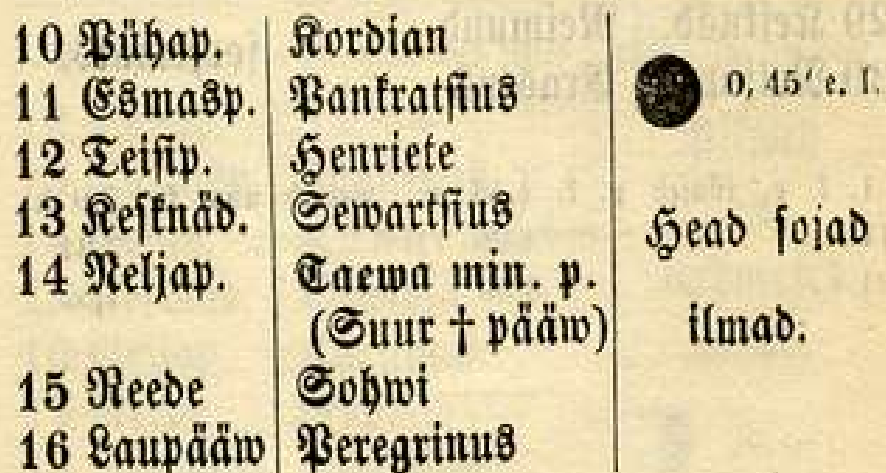 10 Pühap. Kordian
11 Esmasp. Pankratsius 0, 45′ e. l.
12 Teisip. Henriete
13 Kesknäd. Sewartsius Head sojad
14 Neljap. Taewa min. p.
(Suur † pääw) ilmad.
15 Reede Sohwi
16 Laupääw Peregrinus